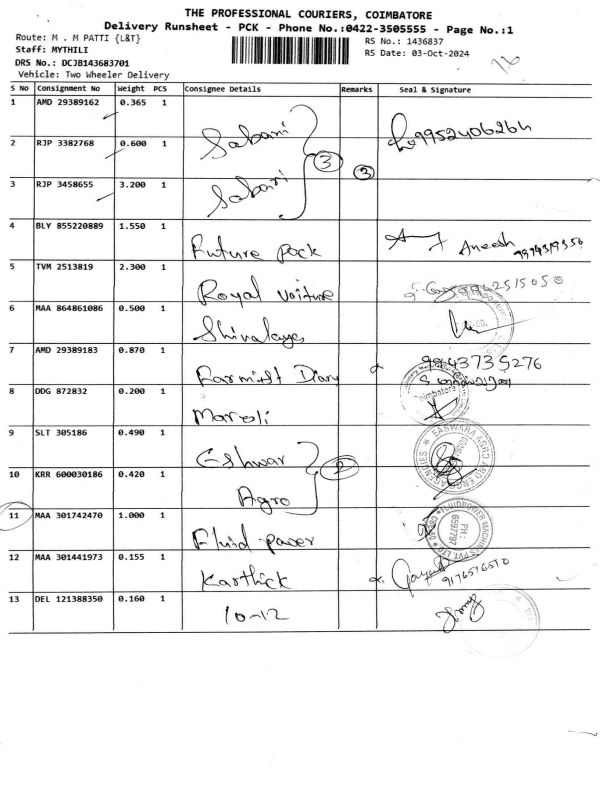 THE PROFESSIONAL COURIERS, COIMBATORE
Delivery Runsheet - PCK - Phone No.:0422-3505555 - Page No.:1
Route: M . M PATTI {L&T}
RS No.: 1436837
Staff: MYTHILI
RS Date: 03-Oct-2024
DRS No.: DCJB143683701
Vehicle: Two Wheeler Delivery
S No Consignment No Weight PCS Consignee Details Remarks Seal & Signature
1 AMD 29389162 0.365 1 Sabari 9952406264
2 RJP 3382768 0.600 1 3
3 RJP 3458655 3.200 1 Sabari 3
4 BLY 855220889 1.550 1 Future pack Aneesh
5 TVM 2513819 2.300 1 Royal voiture 9942515050
6 MAA 864861086 0.500 1 Shivalayas
7 AMD 29389183 0.870 1 Farmist Diary 9943735276
8 DDG 872832 0.200 1 Maroli Coimbatore
9 SLT 305186 0.490 1 Eshwar EASWARA AGRO AGENCIES
10 KRR 600030186 0.420 1 Agro 2
11 MAA 301742470 1.000 1 Fluid power FLUIDPOWER MACHINES PVT LTD PH: 6597797
12 MAA 301441973 0.155 1 Karthick 9176576570
13 DEL 121388350 0.160 1 10-12